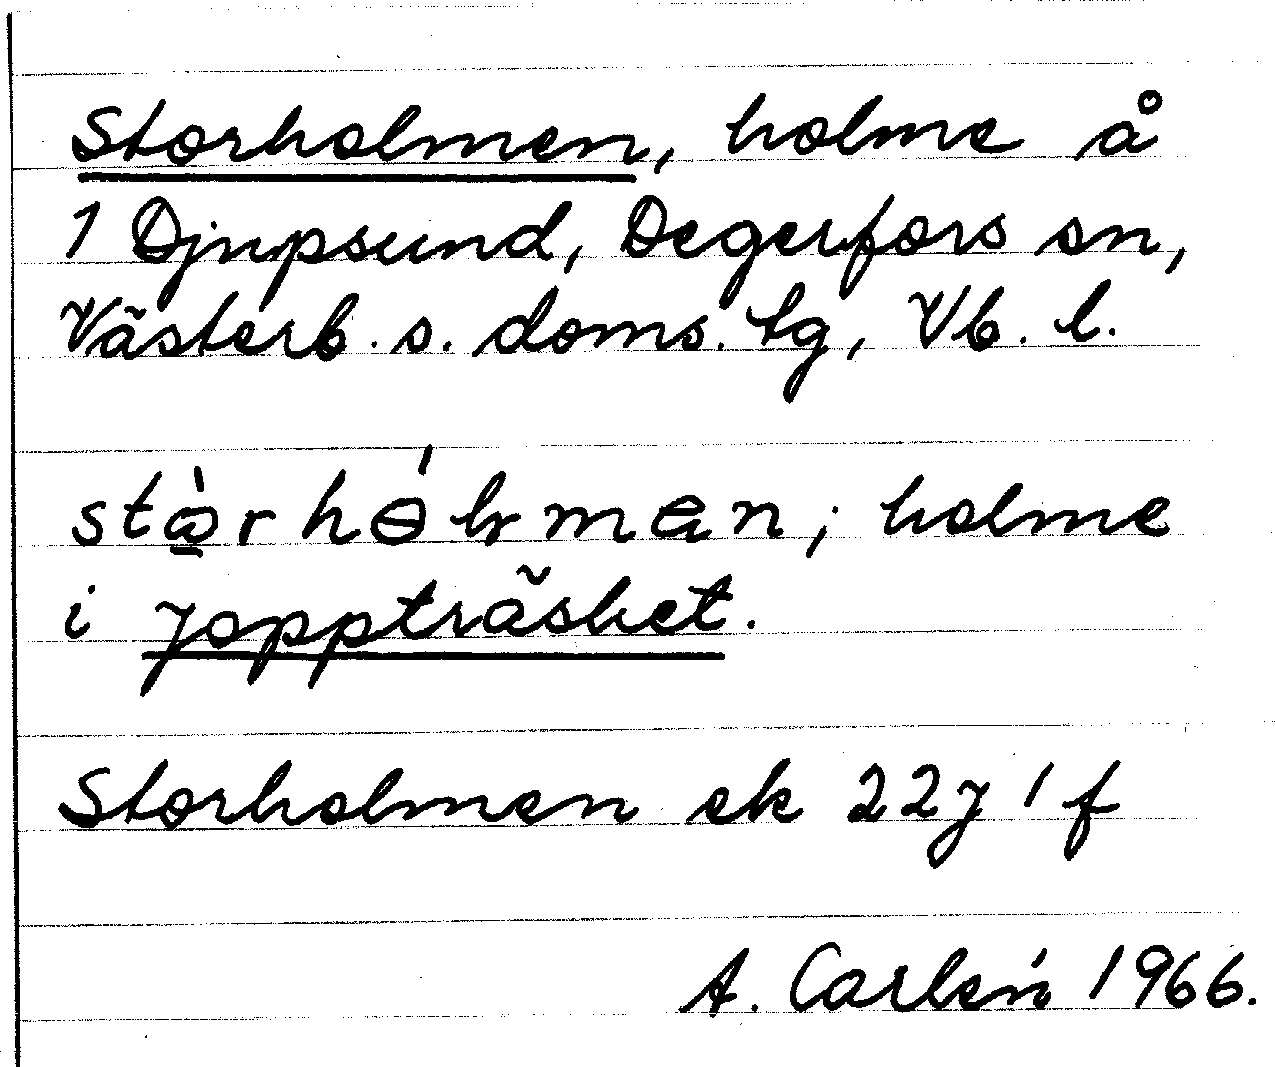 Storholmen, holme å
1 Djupsund, Degerfors sn,
Västerb. s. doms. tg, Vb. l.
holme
i Joppträsket.
Storholmen ek 22J 1 f
A. Carlén 1966.